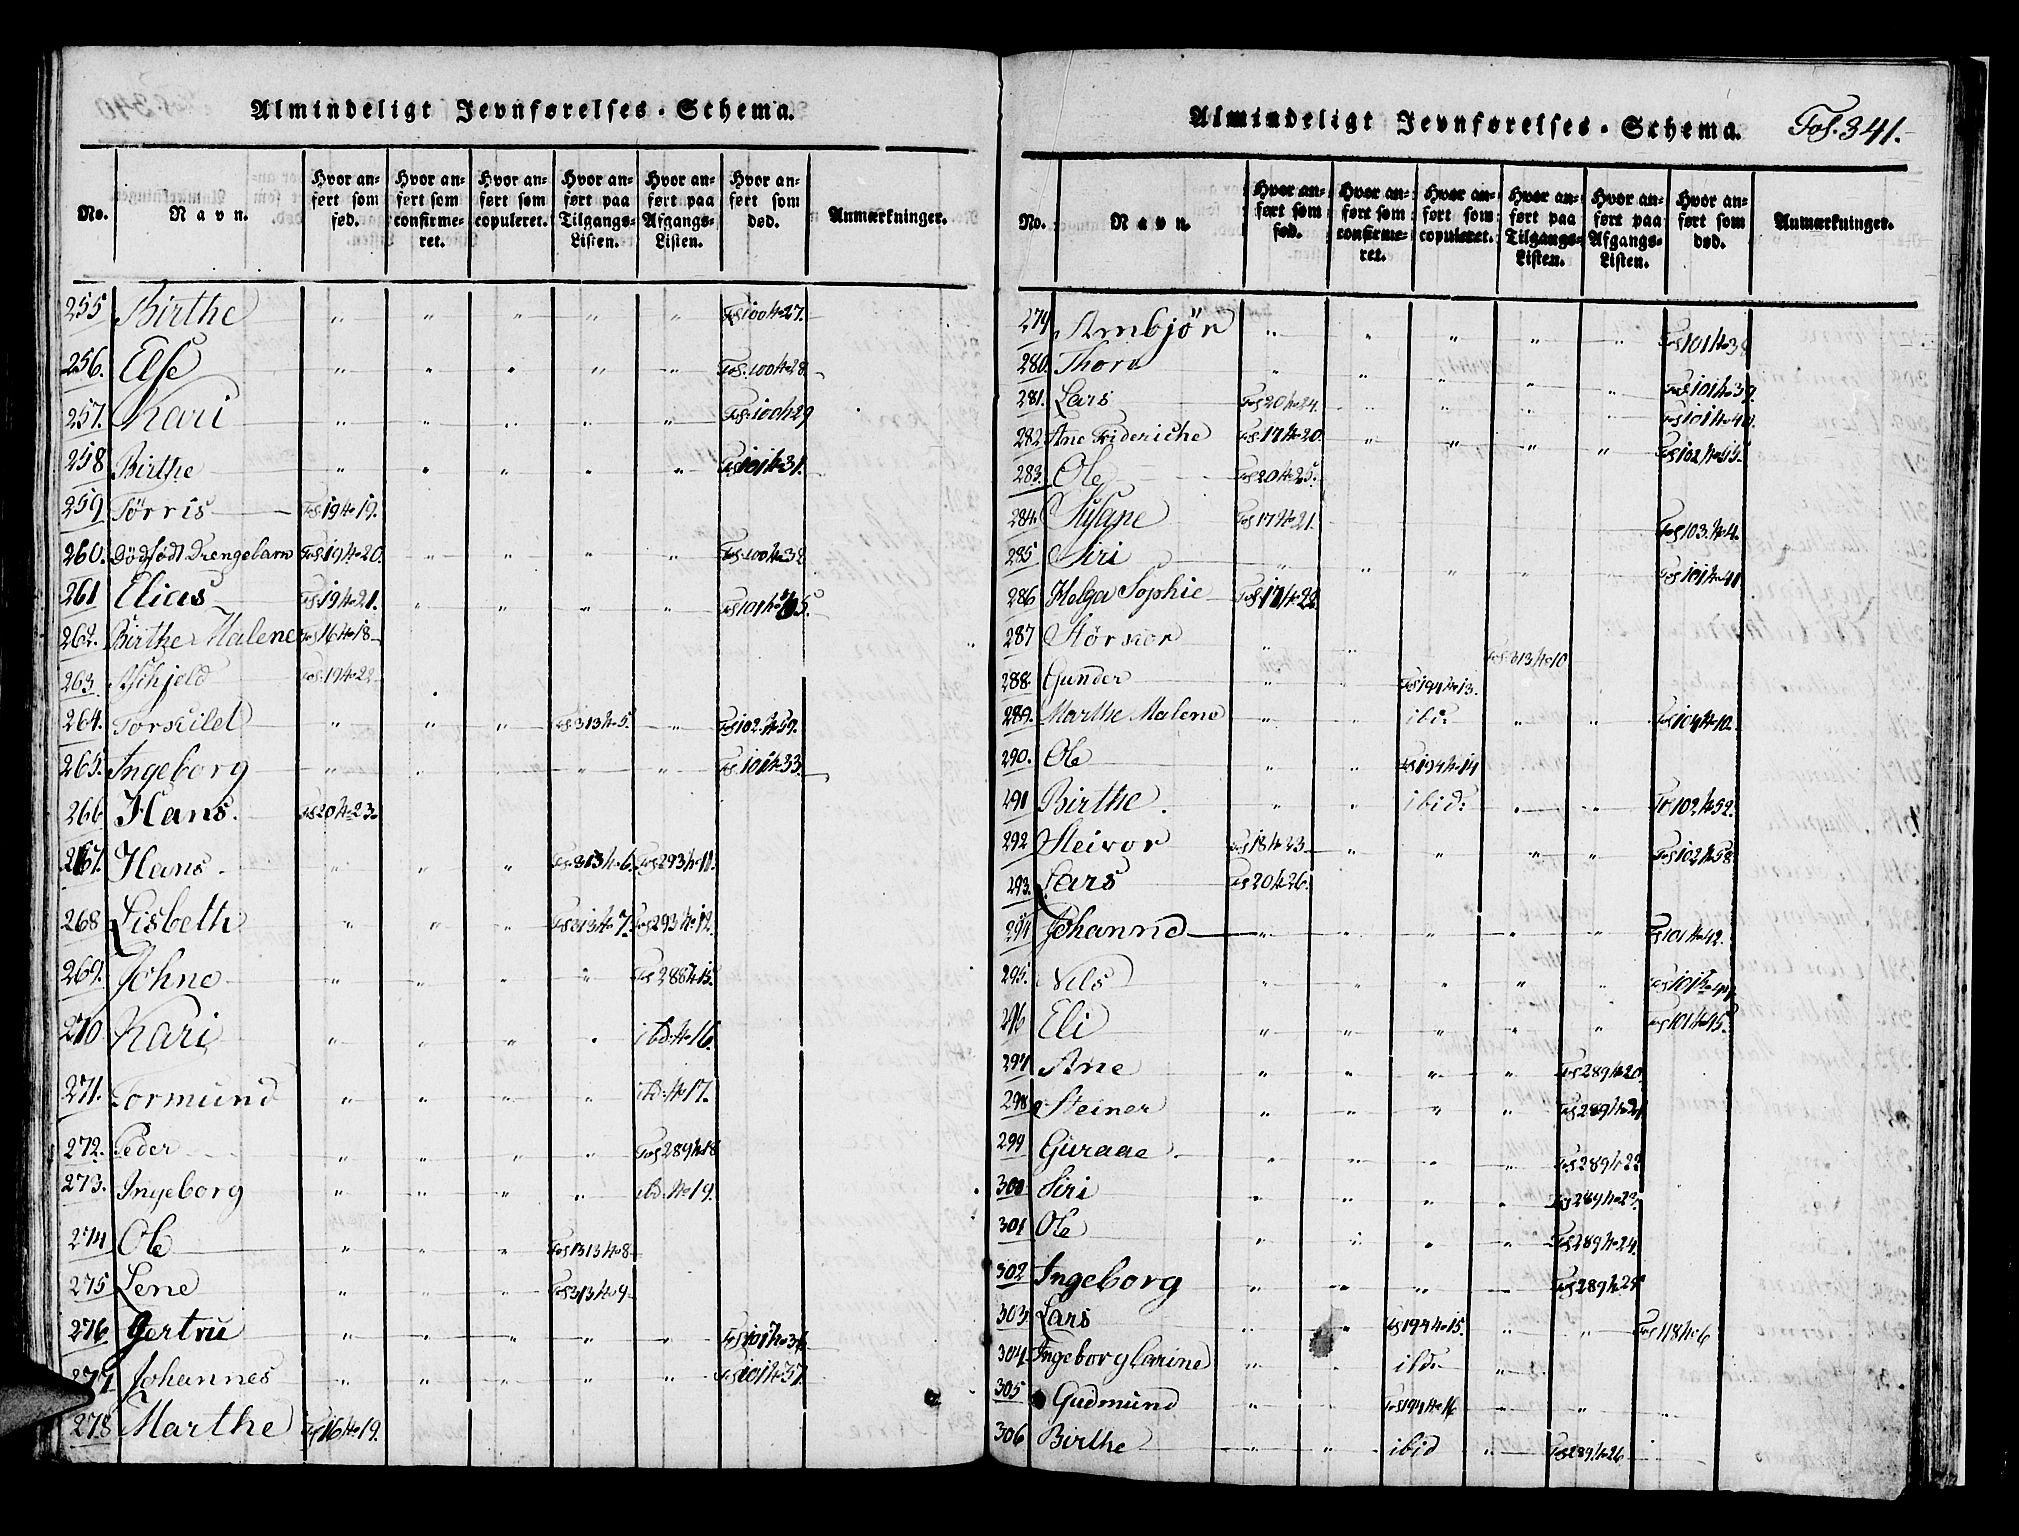 Almindeligt Jevnførelses-Schema.
No. Navn. Hvor anført som fød. Hvor anført som confirmeret. Hvor anført som copuleret. Hvor anført paa Tilgangs-Listen. Hvor anført paa Afgangs-Listen. Hvor anført som død. Anmærkninger.
255 Birthe " " " " " Fol:100 No 27.
256. Else " " " " " Fol:100 No 28.
257. Kari " " " " " Fol:100 No 29
258 Birthe " " " " " Fol 101 No 31.
259 Tørris Fol:19 No 19.
260. Dødfødt Drengebarn Fol 19 No 20. " " " " Fol:100 No 38
261 Elias Fol 19 No 21. " " " "
262. Birthe Malene Fol 16 No 18
263. Fol:19 No 22
264. Torskilel " " " Fol 313 No 5. " Fol 102. No 59.
265. Ingeborg " " " " " Fol 101 No 33.
266 Hans. Fol 20 No 23.
267. Hans. " " " Fol 313 No 6. Fol 293 No 11.
268 Lisbeth " " " Fol 313 No 7. Fol 293 No 12.
269. Johne " " " " Fol 288 No 15.
270 Kari " " " " ibd: No 16.
271. Tormund " " " " ibd. No 17.
272. Peder " " " " Fol 289 No 18
273. Ingeborg " " " " ibd. No 19.
274 Ole " " " Fol 313 No 8
275 Lene " " " Fol 313 No 9
276 Gertru " " " " " Fol 101 No 36
277 Johannes " " " " " Fol 101 No 37.
278 Marthe Fol 16 No 19.
Almindeligt Jevnførelses-Schema. Fol. 341.
No. Navn. Hvor anført som fød. Hvor anført som confirmeret. Hvor anført som copuleret. Hvor anført paa Tilgangs-Listen. Hvor anført paa Afgangs-Listen. Hvor anført som død. Anmærkninger.
279 Ambjør " " " " " Fol 101 No 38
280. Thora " " " " " Fol 101 No 39.
281. Lars Fol 20 No 24. " " " " Fol 101 No 40.
282 Ane Friderriche Fol 17 No 20. " " " " Fol 102 No 45.
283. Ole Fol 20 No 25.
284. Susane Fol 17 No 21. Fol 103. No 4.
285 Siri " " " " " Fol 101 No 41
286 Helga Sophie Fol 17 No 22.
287 Størkor " " Fol 313 No 10
288 Gunder " " Fol 194 No 13.
289. Marthe Malene " " ibid " " Fol 104 No 12.
290. Ole " " Fol 194 No 14
291 Birthe. " " ibid: " " Fol 102 No 52.
292 Steivor Fol 18 No 23 " " " " Fol 102 No 58.
293. Lars Fol 20 No 26.
294 Johanne " " " " " Fol 101 No 42.
295. Nils " " " " " Fol 101 No 44
296 Eli " " " " " Fol 101 No 45.
297 Arne " " " " Fol 289 No 20.
298 Steiner " " " " Fol 289 No 21
299 Guraae " " " " Fol 289 No 22
300 Siri " " " " Fol 289 No 23.
301 Ole " " " " Fol 289 No 24.
302 Ingeborg " " " " Fol 289 No 25
303 Lars " " Fol 194 No 15. " " Fol 118 No 6
304 Ingeborg Carine " " ibd: "
305 Gudmund " " Fol 194 No 16 " " "
306 Birthe " " ibid " Fol 289. No 26